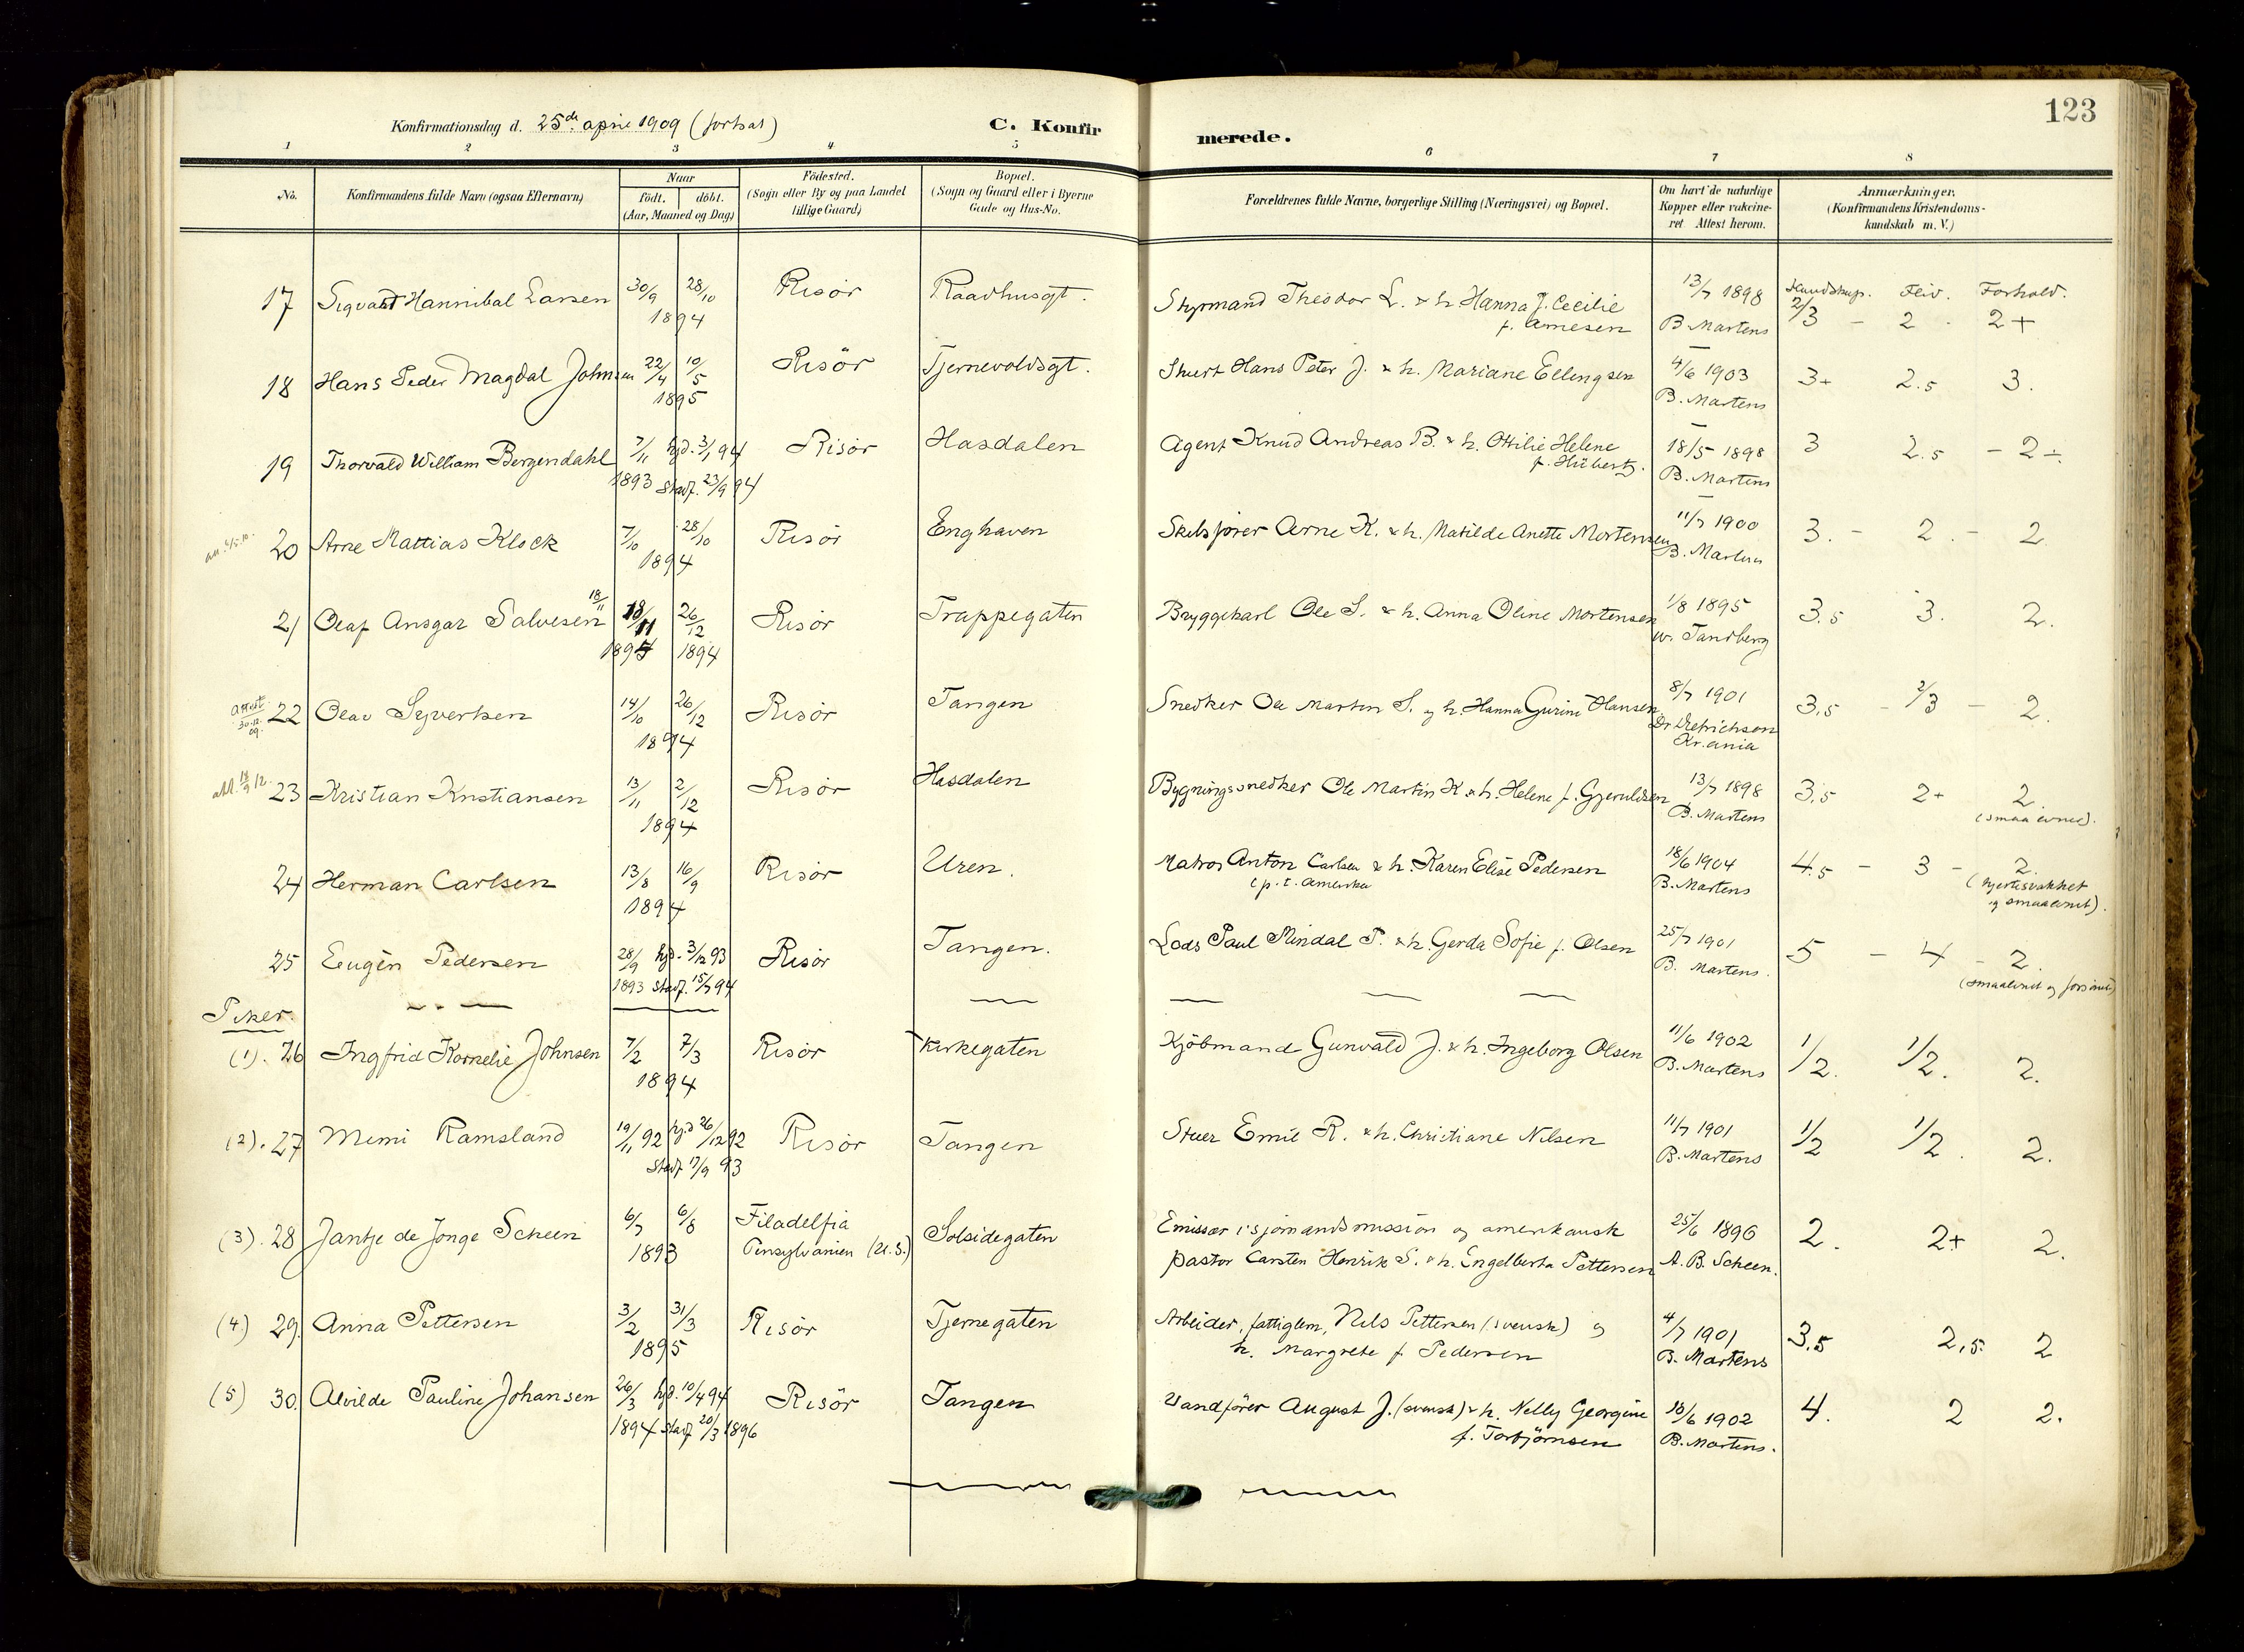 123
Konfirmationsdag d. 25de april 1909 (fortsat)
C. Konfirmerede.
1 2 3 4 5 6 7 8
No.
Konfirmandens fulde Navn (ogsaa Efternavn)
Naar
født. døbt.
(Aar, Maaned og Dag)
Fødested.
(Sogn eller By og paa Landet
tillige Gaard)
Bopæl.
(Sogn og Gaard eller i Byerne
Gade og Hus-No.
Forældrenes fulde Navne, borgerlige Stilling (Næringsvei) og Bopæl.
Om havt de naturlige
Kopper eller vakcine-
ret Attest herom.
Anmærkninger.
(Konfirmandens Kristendoms-
kundskab m. V.)
Kundskap. Flid. Forhold.
17 Sigvald Hannibal Larsen 30/9 28/10 1894 Risør Raadhusgt. Styrmand Theodor L. & h. Hanna J. Cecilie f. Arnesen 13/7 1898 B. Martens 2/3 - 2 - 2+
18 Hans Peder Magdal Johnsen 22/4 10/5 1895 Risör Tjernevoldsgt. Stuert Hans Peter J. & h. Mariane Ellingsen 4/6 1903 B. Martens 3+ 2.5 3.
19 Thorvald William Bergendahl 7/11 1893 hjd. 3/1 94 stadf. 23/9 94 Risör Hasdalen Agent Knud Andreas B. & h. Ottilie Helene f. Hübertz. 18/5 1898 B. Martens 3 2.5 - 2÷
20 Arne Mattias Klock 7/10 28/10 1894 Risör Enghaven Skibsfører Arne K. & h. Matilde Anette Mortensen 11/7 1900 B. Martens 3. - 2. - 2
21 Olaf Ansgar Salvesen 18/11 18/11 1894 26/12 1894 Risör Trappegaten Bryggekarl Ole S. & h. Anna Oline Mortensen 1/8 1895 w. Tandberg 3.5 3. 2.
Attest 30.12.09. 22 Olav Syvertsen 14/10 26/12 1894 Risör Tangen Snedker Ole Martin S. og h. Hanna Gurine Hansen 8/7 1901 Dr Dietrichson Kr.ania 3.5 - 2/3 - 2.
23 Kristian Kristiansen 13/11 2/12 1894 Risör Hasdalen Bygningssnedker Ole Martin K. & h. Helene f. Gjeruldsen 13/7 1898 B. Martens 3.5 2+ 2. (smaa evner).
24 Herman Carlsen 13/8 16/9 1894 Risör Uren. Matros Anton Carlsen & h. Karen Elise Pedersen (p.t. Amerika 18/6 1904 B. Martens 4.5 - 3 - 2. (hjertesvakhet og smaat evnet).
25 Eugén Pedersen 28/9 1893 hjd. 3/12 93 stadf. 15/7 94 Risör Tangen. Lods Paul Mindal P. & h. Gerda Sofie f. Olsen 25/7 1901 B. Martens. 5 - 4 - 2.
Piker.
(1). 26 Ingfrid Kornelie Johnsen 7/2 7/3 1894 Risör Kirkegaten Kjöbmand Gunvald J. & h. Ingeborg Olsen 11/6 1902 B. Martens 1/2. 1/2. 2.
(2). 27 Mimi Ramsland 19/11 92 hjd 26/12 92 Stadf. 17/9 93 Risör Tangen Stuer Emil R. & h. Christiane Nilsen 11/7 1901 B. Martens 1/2 1/2. 2.
(3). 28 Jantje de Jonge Scheen 6/7 6/8 1893 Filadelfia Pensylvanien (U.S.) Solsidegaten Emissær i sjömandsmission og amerikansk pastor Carsten Henrik S. & h. Engelberta Pettersen 25/6 1896 A. B. Scheen. 2. 2+ 2.
(4) 29. Anna Pettersen 3/2 31/3 1895 Risör Tjernegaten Arbeider, fattiglem, Nils Pettersen (svensk) og h. Margrete f. Pedersen 4/7 1901 B. Martens 3.5 2,5 2
(5) 30. Alvilde Pauline Johansen 26/3 1894 hjd. 10/4 94 stadf 20/3 1896 Risör Tangen Vandfører August J. (svensk) & h. Nelly Georgine f. Torbjörnsen 18/6 1902 B. Martens. 4. 2 2.